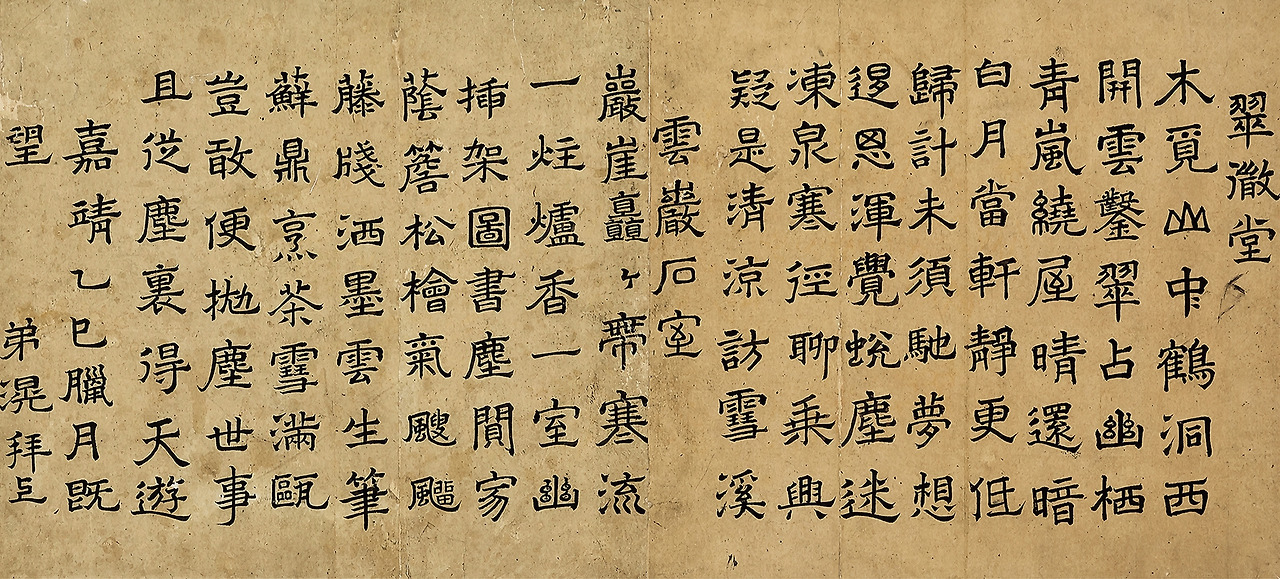 翠微堂
木覓山中鶴洞西
開雲鑿翠占幽栖
青嵐繞屋晴還暗
白月當軒靜更低
歸計未須馳夢想
恩渾覺蛻塵迷
凍泉寒徑聊乗興
疑是清涼訪雪溪
雲巖石室
巖崖矗々帶寒流
一炷爐香一室幽
揷架圖書塵閴寂
蔭簷松檜氣颼飀
藤牋洒墨雲生筆
蘚鼎烹茶雪滿甌
豈敢便抛塵世事
且從塵裏得天遊
嘉靖乙巳臘月旣
望 弟滉拜上